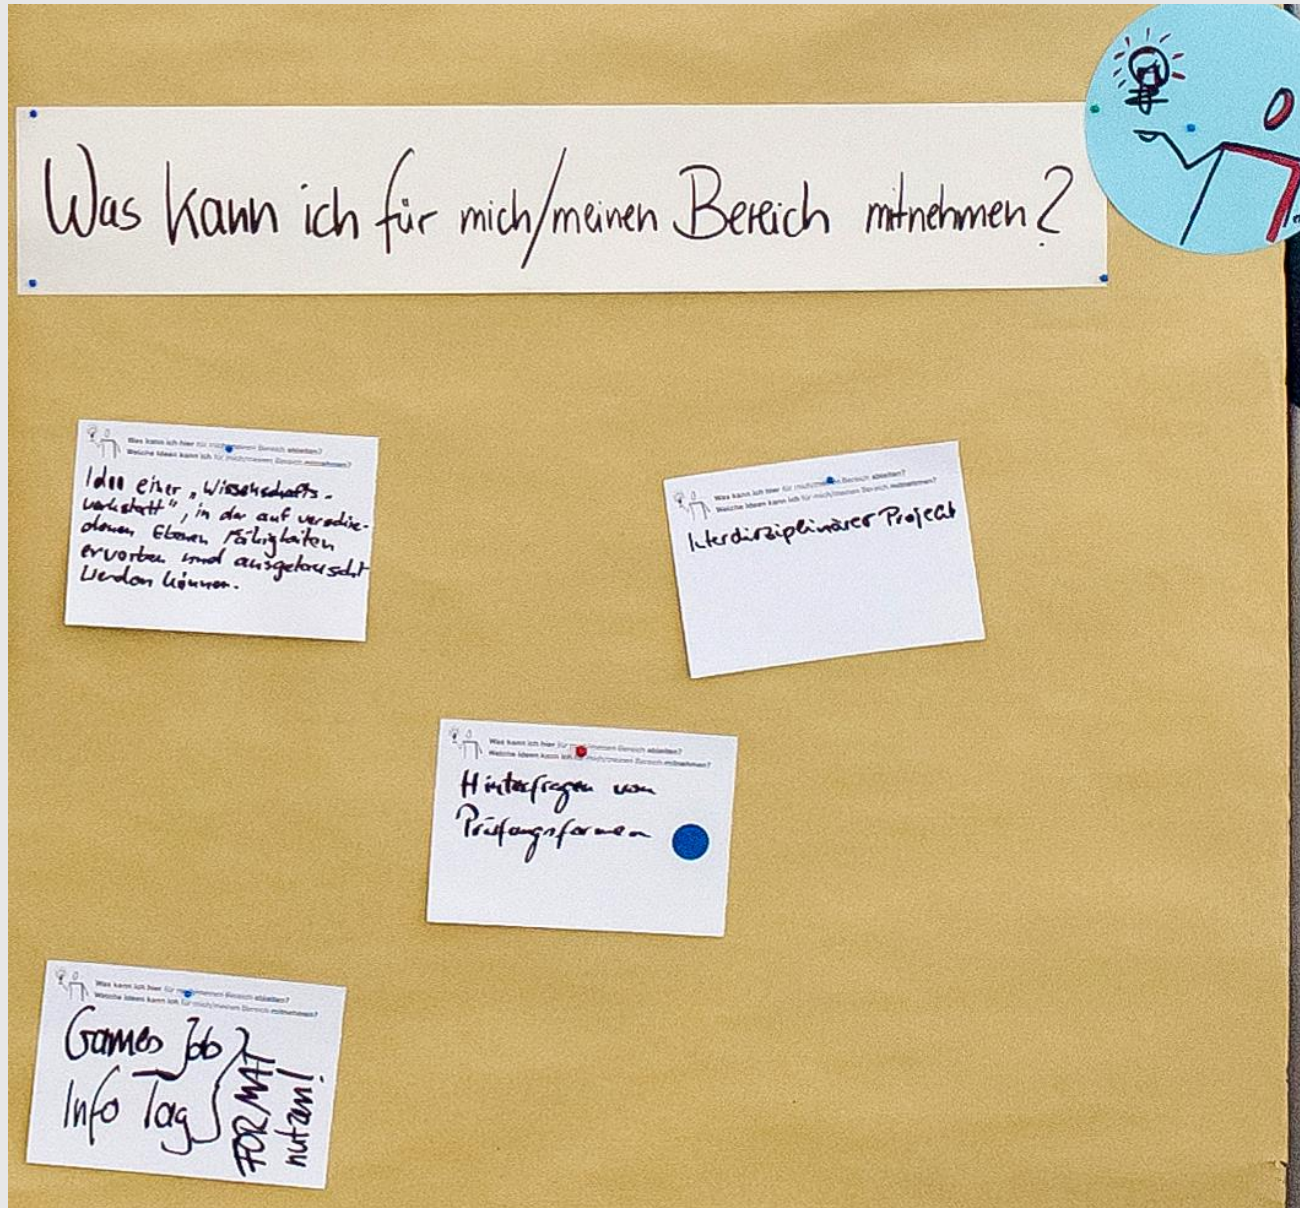 Was kann ich für mich/meinen Bereich mitnehmen?
Was kann ich hier für mich/meinen Bereich ableiten?
Welche Ideen kann ich für mich/meinen Bereich mitnehmen?
Idee einer „Wissenschafts-
werkstatt", in der auf verschie-
denen Ebenen Fähigkeiten
erworben und ausgetauscht
werden können.
Was kann ich hier für mich/meinen Bereich ableiten?
Welche Ideen kann ich für mich/meinen Bereich mitnehmen?
Interdisziplinäres Projekt
Was kann ich hier für mich/meinen Bereich ableiten?
Welche Ideen kann ich für mich/meinen Bereich mitnehmen?
Hinterfragen von
Prüfungsformen
Was kann ich hier für mich/meinen Bereich ableiten?
Welche Ideen kann ich für mich/meinen Bereich mitnehmen?
Games Job
Info Tag
FORMAT
nutzen!